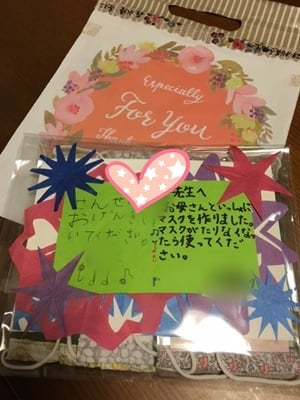 Especially
For You
せんせ
おげんき
いてください。
先生へ
お母さんといっしょに
マスクを作りました。
マスクがたりなくなっ
たら使ってくだ
さい。